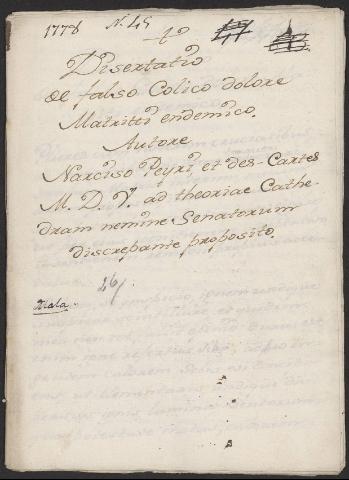 1778 N. 45
1º
Disertatio
de falso Colico dolore
Matriti endemico.
Autore
Narciso Peyri, et des-Cartes
M. D. ad theoriae Cathe-
dram nemine Senatorum
discrepante proposito.
Mala.